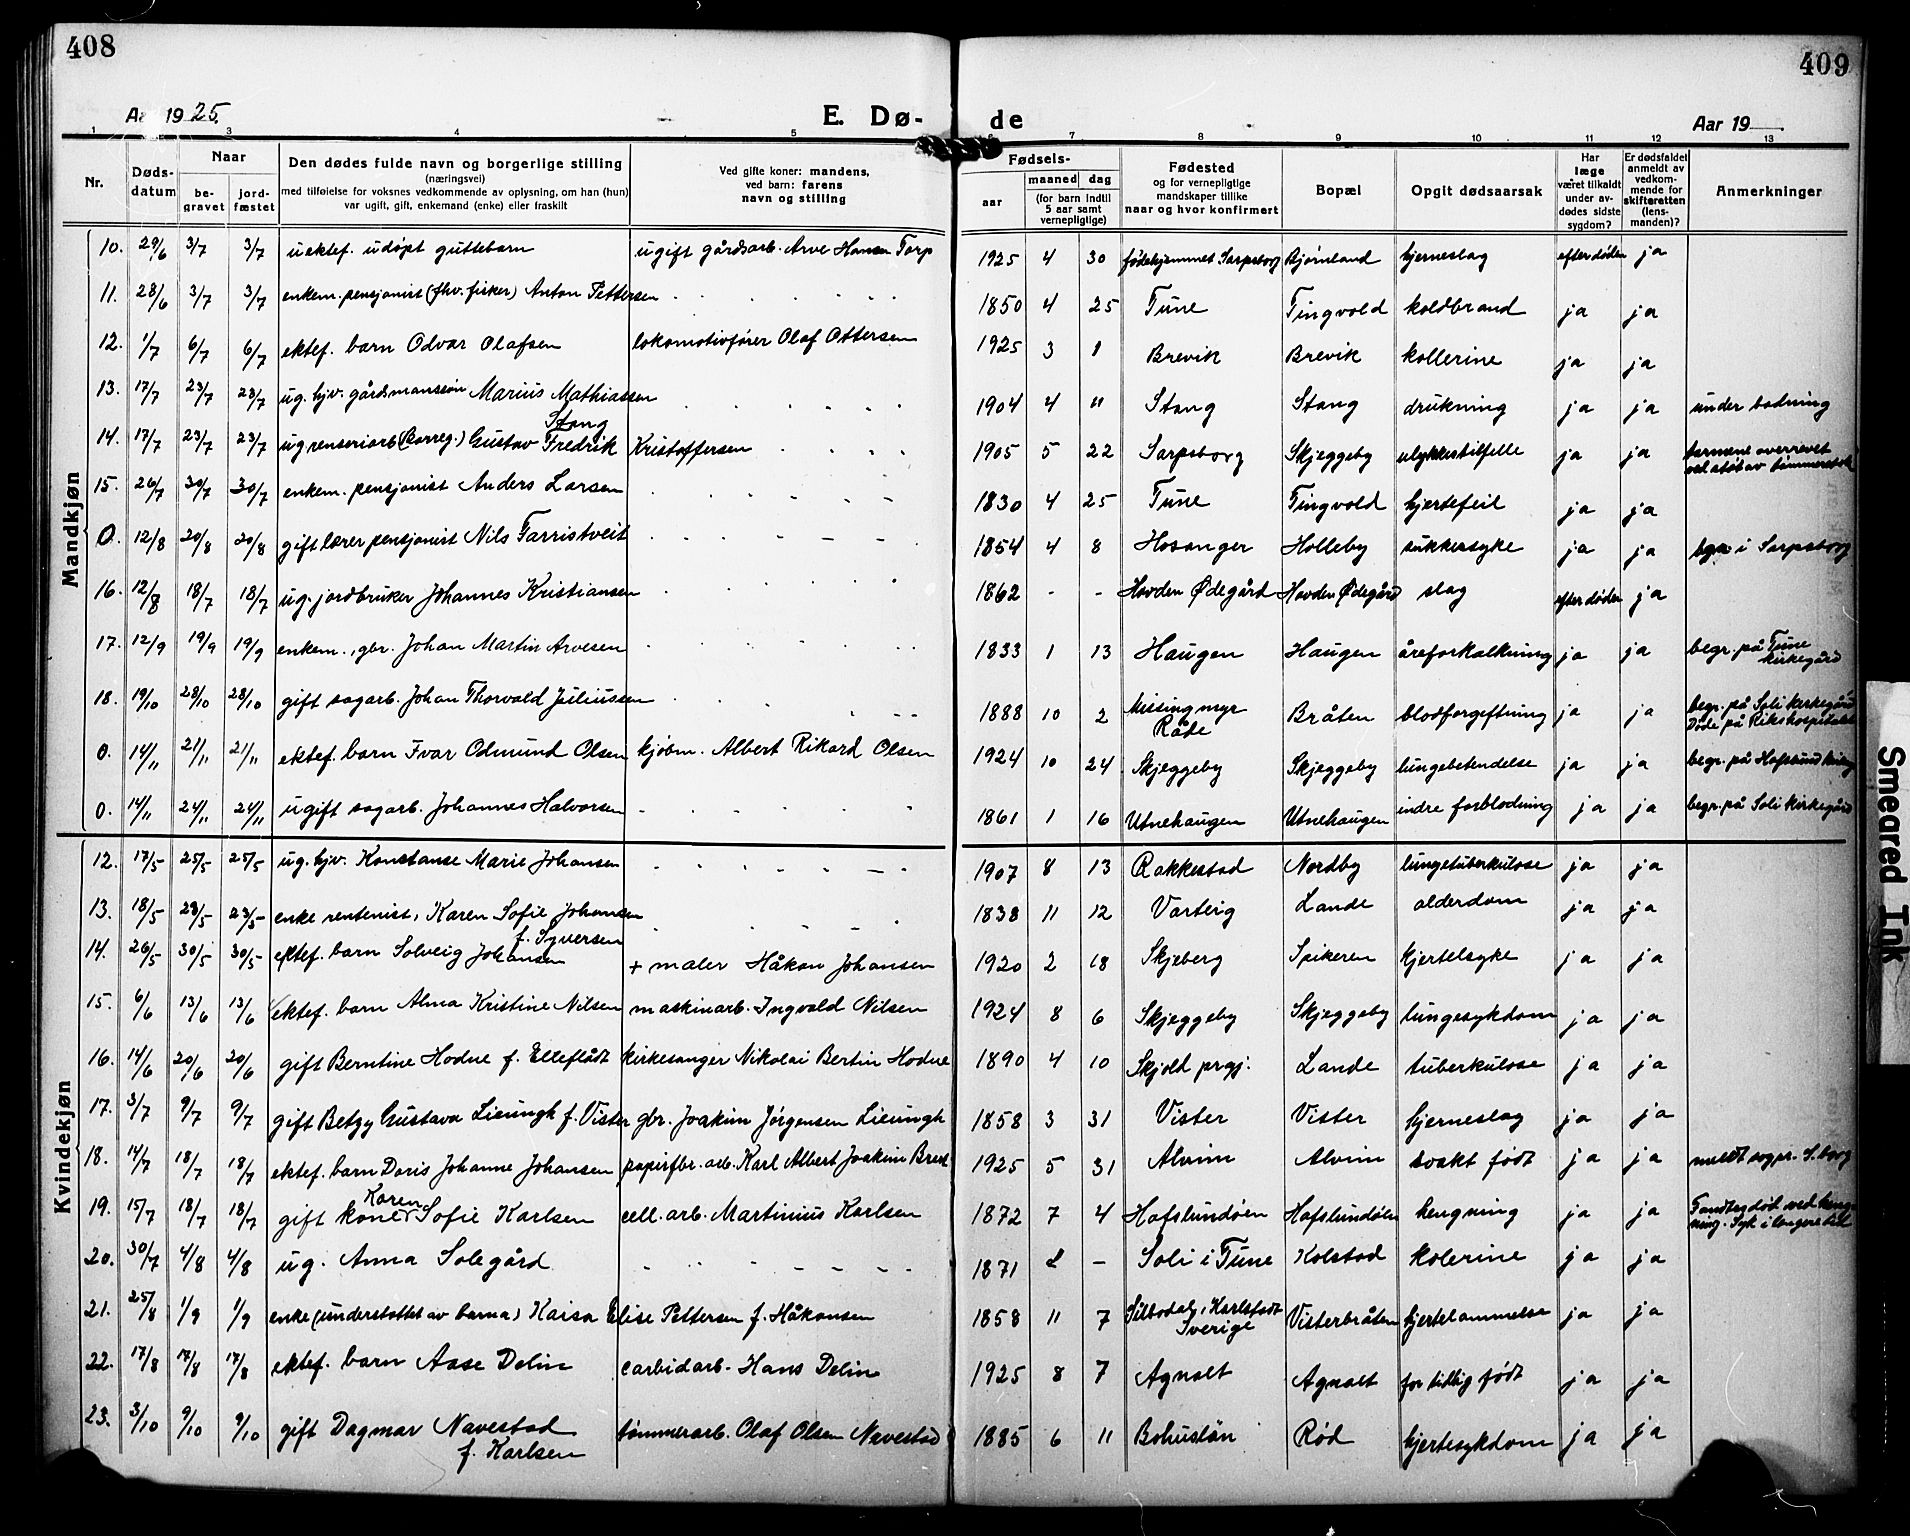 408
409
Aar 1925.
E. Dø-
de
Aar 19
1 3 4 5 7 8 9 10 11 12 13
Nr.
Døds-
datum
Naar
be-
gravet
jord-
fæstet
Den dødes fulde navn og borgerlige stilling
(næringsvei)
med tilføielse for voksnes vedkommende av oplysning, om han (hun)
var ugift, gift, enkemand (enke) eller fraskilt
Ved gifte koner: mandens,
ved barn: farens
navn og stilling
Fødsels-
aar
maaned
dag
(for barn indtil
5 aar samt
vernepligtige)
Fødested
og for vernepligtige
mandskaper tillike
naar og hvor konfirmert
Bopæl
Opgit dødsaarsak
Har
læge
været tilkaldt
under av-
dødes sidste
sygdom?
Er dødsfaldet
anmeldt av
vedkom-
mende for
skifteretten
(lens-
manden)?
Anmerkninger
Mandkjøn
10. 29/6 3/7 3/7 uektef. udøpt guttebarn ugift gårdsarb. Arve Hansen Torp 1925 4 30 fødehjemmet Sarpsborg Bjørnland hjerneslag efter døden ja
11. 28/6 3/7 3/7 enkem. pensjonist (fhv. fisker) Anton Pettersen 1850 4 25 Tune Tingvold koldbrand ja ja
12. 1/7 6/7 6/7 ektef. barn Odvar Olafsen lokomotivfører Olaf Ottersen 1925 3 1 Brevik Brevik kollerine ja ja
13. 17/7 23/7 23/7 ug. hjv. gårdmannsøn Marius Mathiassen Stang 1904 4 11 Stang Stang drukning ja ja under badning
14. 17/7 23/7 23/7 ug renseriarb (Borreg.) Gustav Fredrik Kristoffersen 1905 5 22 Sarpsborg Skjeggeby ulykkestilfelle ja ja tarmene overrevet ved støt av tømmerstok
15. 26/7 30/7 30/7 enkem. pensjonist Anders Larsen 1830 4 25 Tune Tingvold hjertefeil ja ja
0. 12/8 20/8 20/8 gift lærer pensjonist Nils Farristveit 1854 4 8 Hosanger Holleby sukkersyke ja ja bgr. i Sarpsborg
16. 12/8 18/7 18/7 ug. jordbruker Johannes Kristiansen 1862 - - Hovden Ødegård Hovden Ødegård slag efter døden ja
17. 12/9 19/9 19/9 enkem., gbr. Johan Martin Arvesen 1833 1 13 Haugen Haugen åreforkalkning ja ja begr. på Tune kirkegård
18. 19/10 28/10 28/10 gift sagarb. Johan Thorvald Juliussen 1888 10 2 Missingmyr Råde Bråten blodforgiftning ja ja begr. på Soli kirkegård Døde på Rikshospitalet
0. 14/11 21/11 21/11 ektef. barn Ivar Odmund Olsen kjøbm. Albert Rikard Olsen 1924 10 24 Skjeggeby Skjeggeby lungebetendelse ja ja begr. på Hafslund
0. 14/11 24/11 24/11 ugift sagarb. Johannes Halvorsen 1861 1 16 Utnehaugen Utnehaugen indre forblødning ja ja begr. på Soli kirkegård
Kvindekjøn
12. 17/5 25/5 25/5 ug. hjv. Konstanse Marie Johansen 1907 8 13 Rakkestad Nordby lungetuberkulose ja ja
13. 18/5 23/5 23/5 enke rentenist, Karen Sofie Johansen f. Syversen 1838 11 12 Varteig Lande alderdom ja ja
14. 26/5 30/5 30/5 ektef. barn Solveig Johansen + maler Håkon Johansen 1920 2 18 Skjeberg Spikeren kjertelsyke ja ja
15. 6/6 13/6 13/6 ektef. barn Alma Kristine Nilsen maskinarb. Ingvald Nilsen 1924 8 6 Skjeggeby Skjeggeby lungesykdom ja ja
16. 14/6 20/6 20/6 gift Berntine Hodne f. Elleflådt kirkesanger Nikolai Bertin Hodne 1890 4 10 Skjold prgj. Lande tuberkulose ja ja
17. 3/7 9/7 9/7 gift Betzy Gustava Lieungh f. Vister gbr. Joakim Jørgensen Lieungh 1858 3 31 Vister Vister hjerneslag ja ja
18. 14/7 18/7 18/7 ektef. barn Doris Johanne Johansen papirfbr. arb. Karl Albert Joakim 1925 5 31 Alvim Alvim svakt født ja ja meldt sogpr. S.borg
19. 15/7 18/7 18/7 gift Karen Sofie Karlsen cell. arb. Martinius Karlsen 1872 7 4 Hafslundøen Hafslundøen hengning ja ja Fandtes død ved hengning. Syk i lengere tid
20. 30/7 4/8 4/8 ug. Anna Solegård 1871 2 - Soli i Tune Kolstad kolerine ja ja
21. 25/8 1/9 1/9 enke (understøttet av barna) Kaisa Elise Pettersen f. Håkansen 1858 11 7 Silbodal, Karlstadt Sverige Visterbråten kjertelammelse ja ja
22. 17/8 17/8 17/8 ektef. barn Aase Delin carbidarb. Hans Delin 1925 8 7 Agnalt Agnalt for tidlig født ja ja
23. 3/10 9/10 9/10 gift Dagmar Navestad f. Karlsen tømmerarb. Olaf Olsen Navestad 1885 6 11 Bohuslän Rød hjertesykdom ja ja
Smeared Ink